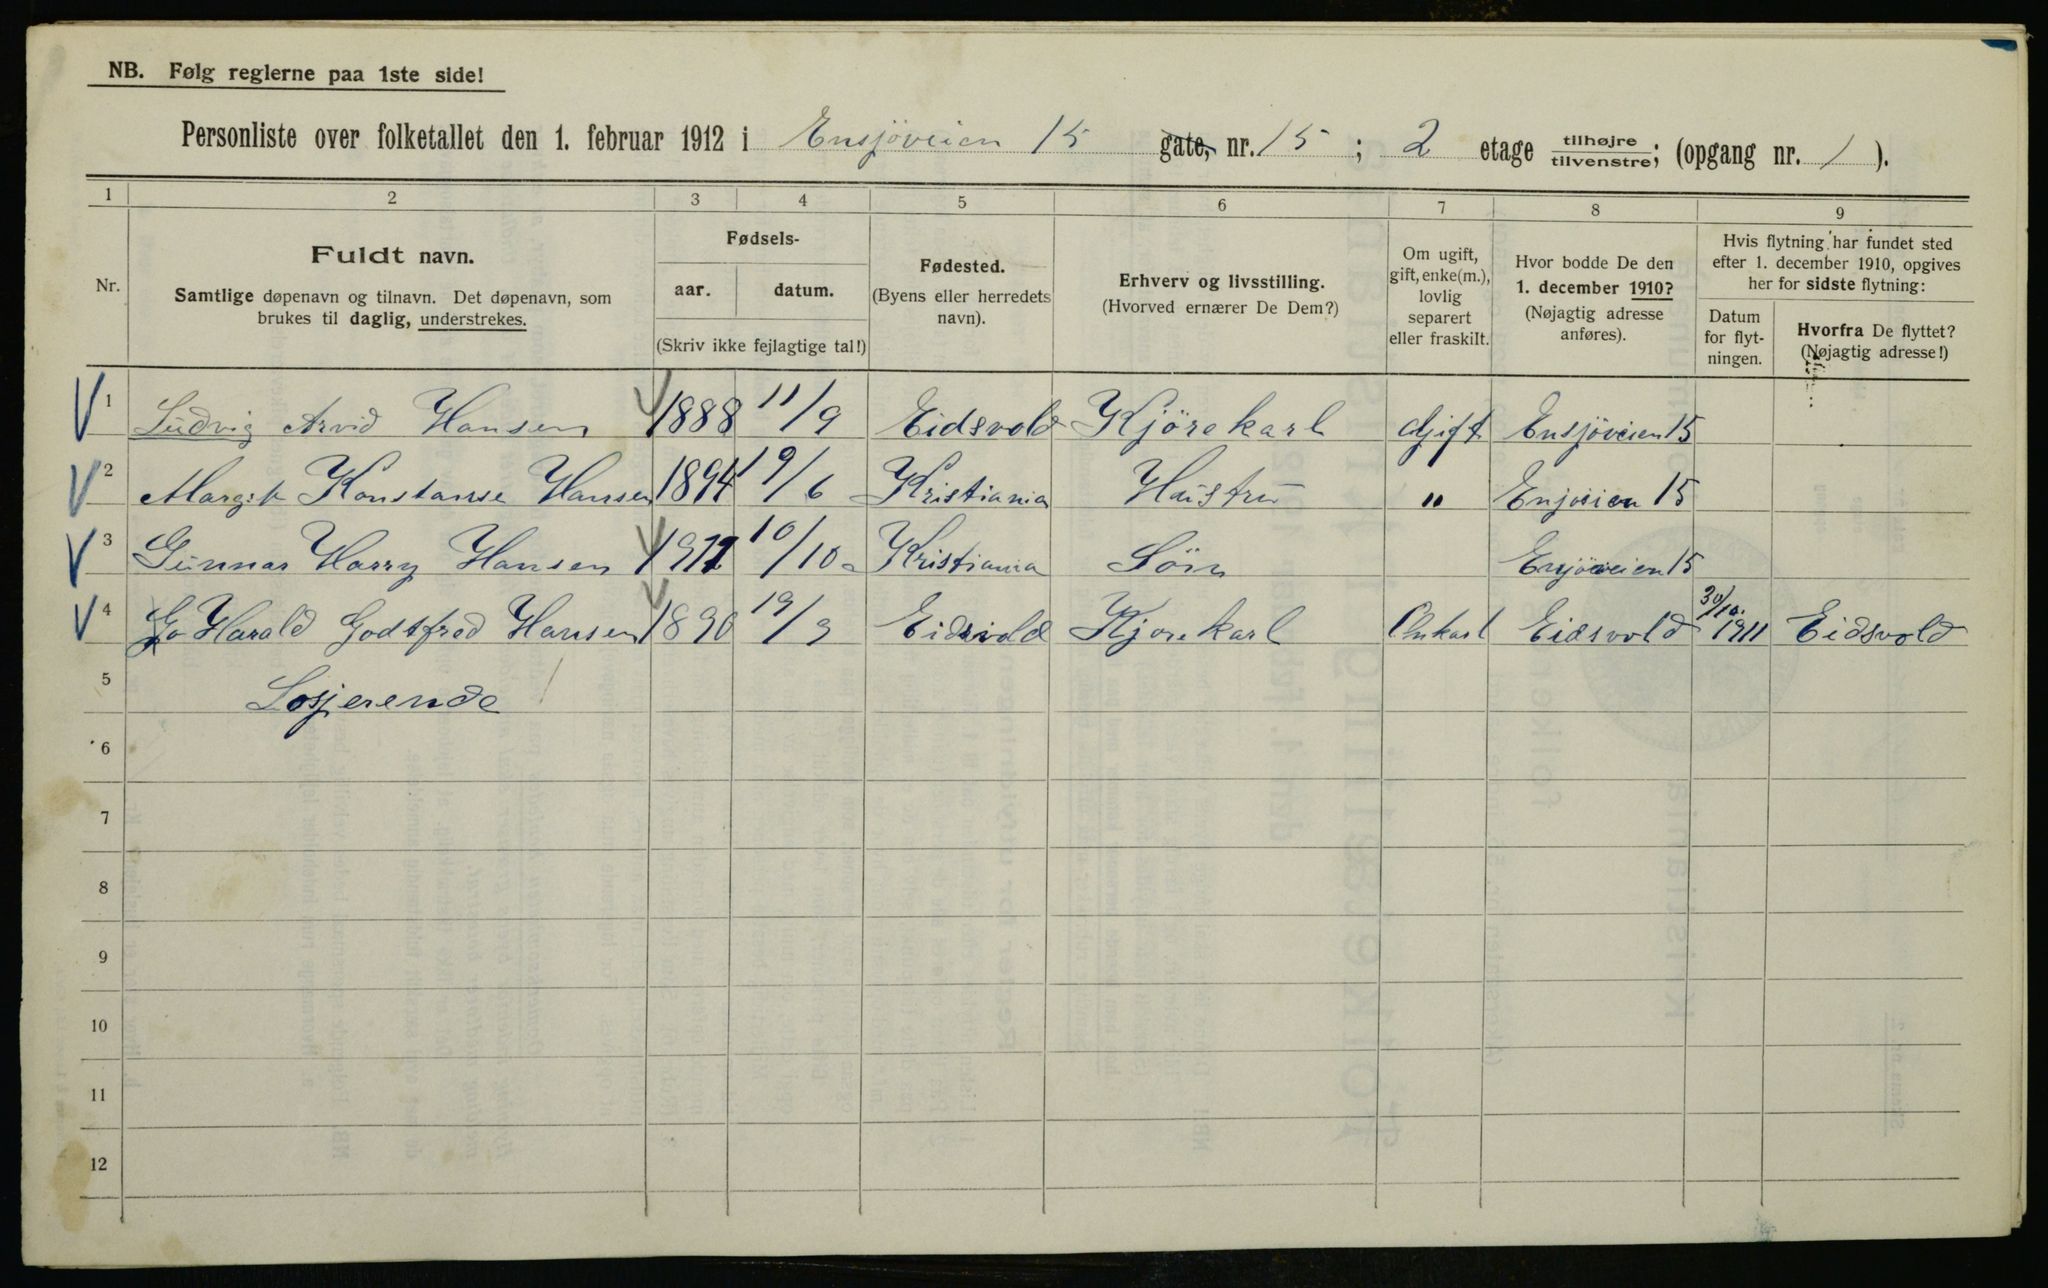 NB. Følg reglerne paa 1ste side!
Personliste over folketallet den 1. februar 1912 i Ensjöveien 15 gate, nr. 15; 2 etage tilhøjre tilvenstre; (opgang nr. 1).
1 2 3 4 5 6 7 8 9
Nr.
Fuldt navn.
Samtlige døpenavn og tilnavn. Det døpenavn, som
brukes til daglig, understrekes.
Fødsels-
aar. datum.
(Skriv ikke fejlagtige tal!)
Fødested.
(Byens eller herredets
navn).
Erhverv og livsstilling.
(Hvorved ernærer De Dem?)
Om ugift,
gift, enke(m.),
lovlig
separert
eller fraskilt.
Hvor bodde De den
1. december 1910?
(Nøjagtig adresse
anføres).
Hvis flytning har fundet sted
efter 1. december 1910, opgives
her for sidste flytning:
Datum
for flyt-
ningen.
Hvorfra De flyttet?
(Nøjagtig adresse!)
1 Ludvig Arvid Hansen 1888 11/9 Eidsvold Kjörekarl Gift Ensjöveien 15
2 Margit Konstanse Hansen 1894 19/6 Kristiania Hustru " Enjöeien 15
3 Gunnar Harry Hansen 1911 10/10 Kristiania Sön Enjöveien 15
4 Harald Godtfred Hansen 1890 19/9 Eidsvold Kjorekarl Eidsvold 30/10. 1911 Eidsvold
5 Losjerende
6
7
8
9
10
11
12